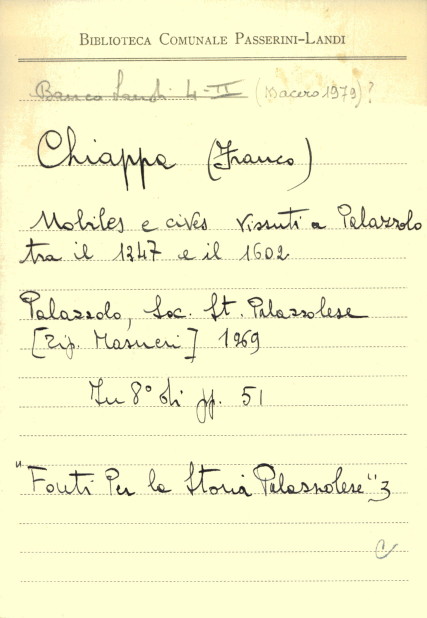 BIBLIOTECA COMUNALE PASSERINI-LANDI
Banco Landi 4-II (Macero 1979)?
Chiappa (Franco)
Nobiles e cives vissuti a Palazzolo
tra il 1347 e il 1602
Palazzolo, Soc. St. Palazzolese
[Tip. Masneri] 1969
In 8° di pp. 51
"Fonti Per la Storia Palazzolese" 3
C